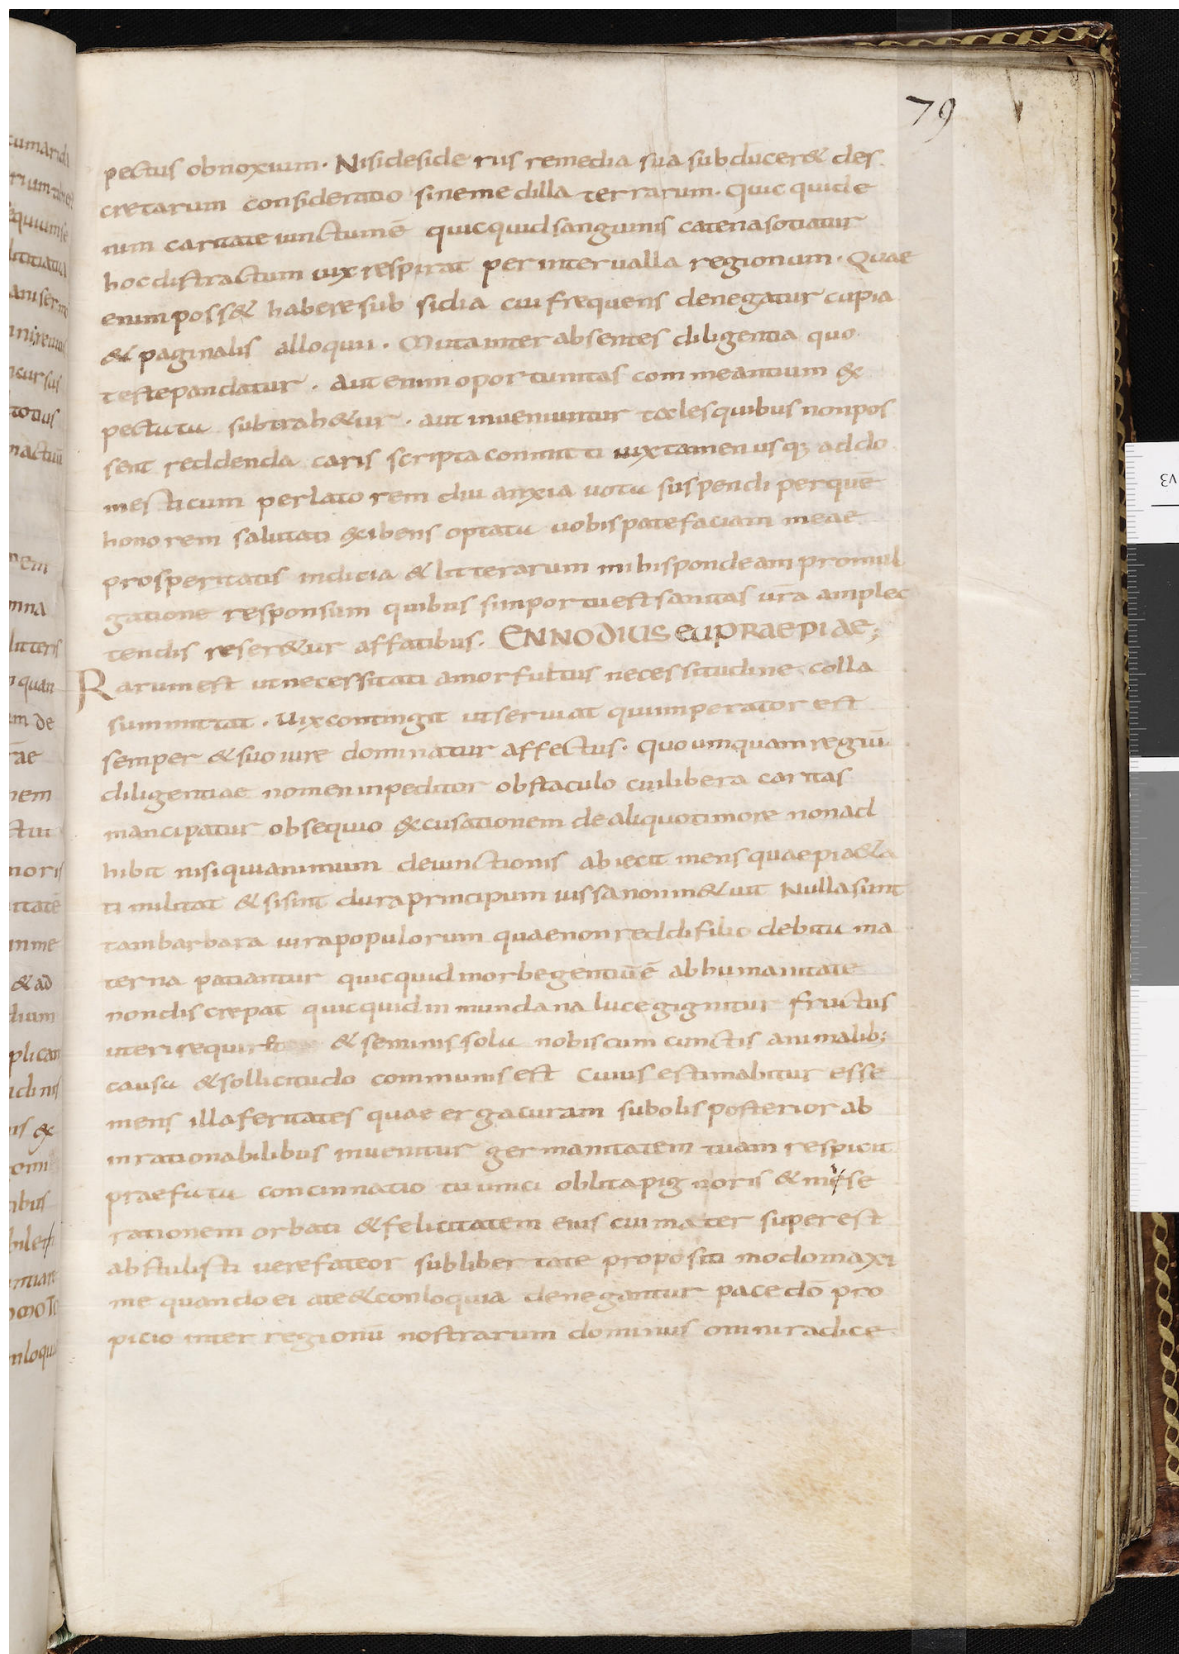 79
pectus obnoxium. Nisideside rus remedia sua subducer& des
cretarum consideratio sineme dilla terrarum. quic quide
nim caritate iunctumē quicquid sanguinis catena sotiatur
hoc distractum uix respirat per interualla regionum. Quae
enim poss& habere sub sidia cui frequens denegatur cupia
& paginalis alloquii. Muta inter absentes diligentia quo
teste pandatur. Aut enim oportunitas commeantium ex
pectutu subtrah&ur. aut inueniuntur tales quibus nonpos
sent reddenda caris scripta conmitti uix tamen usq; addo
mesticum perlato rem diu anxia uotu suspendi perquē
honorem salutati exibens optatu uobis patefaciam meae
prosperitatis indicia & litterarum mihi spondeam promul
gatione responsum quibus sinportu est sanitas ūra amplec
tendis reser&ur affatibus. ENNODIUS EUPRAEPIAE;
Rarum est ut necessitati amor fultus necessitudine colla
summittat. Uix contingit ut seruiat qui imperator est
semper & suo iure dominatur affectus. quo umquam regiū
diligentiae nomen inpeditor obstaculo cui libera caritas
mancipatur obsequio excusationem de aliquo timore non ad
hibit nisi qui animum deiunctionis abiecit mens quae pia&a
ti militat & si sint dura principum iussa non in&uit Nulla sunt
tam barbara iura populorum quae non reddi filio debitu ma
terna patiantur quicquid morbe gentiūē ab humanitate
non discrepat quicquid in mundana luce gignitur fructus
uteri requir & seminis solu nobiscum cunctis animalib;
causa & sollicitudo communis est Cuius estimabitur esse
mens illa feritates quae erga curam subolis posterior ab
inrationabilibus inuenitur germanitatem tuam respicit
praefutu concinnatio tu unici oblita pignoris & mise
rationem orbati & felicitatem eius cui mater superest
abstulisti uere fateor sub libertate propositi modo maxi
me quando ei ate & conloquia denegantur pace dō pro
picio inter regionū nostrarum dominus omni radice